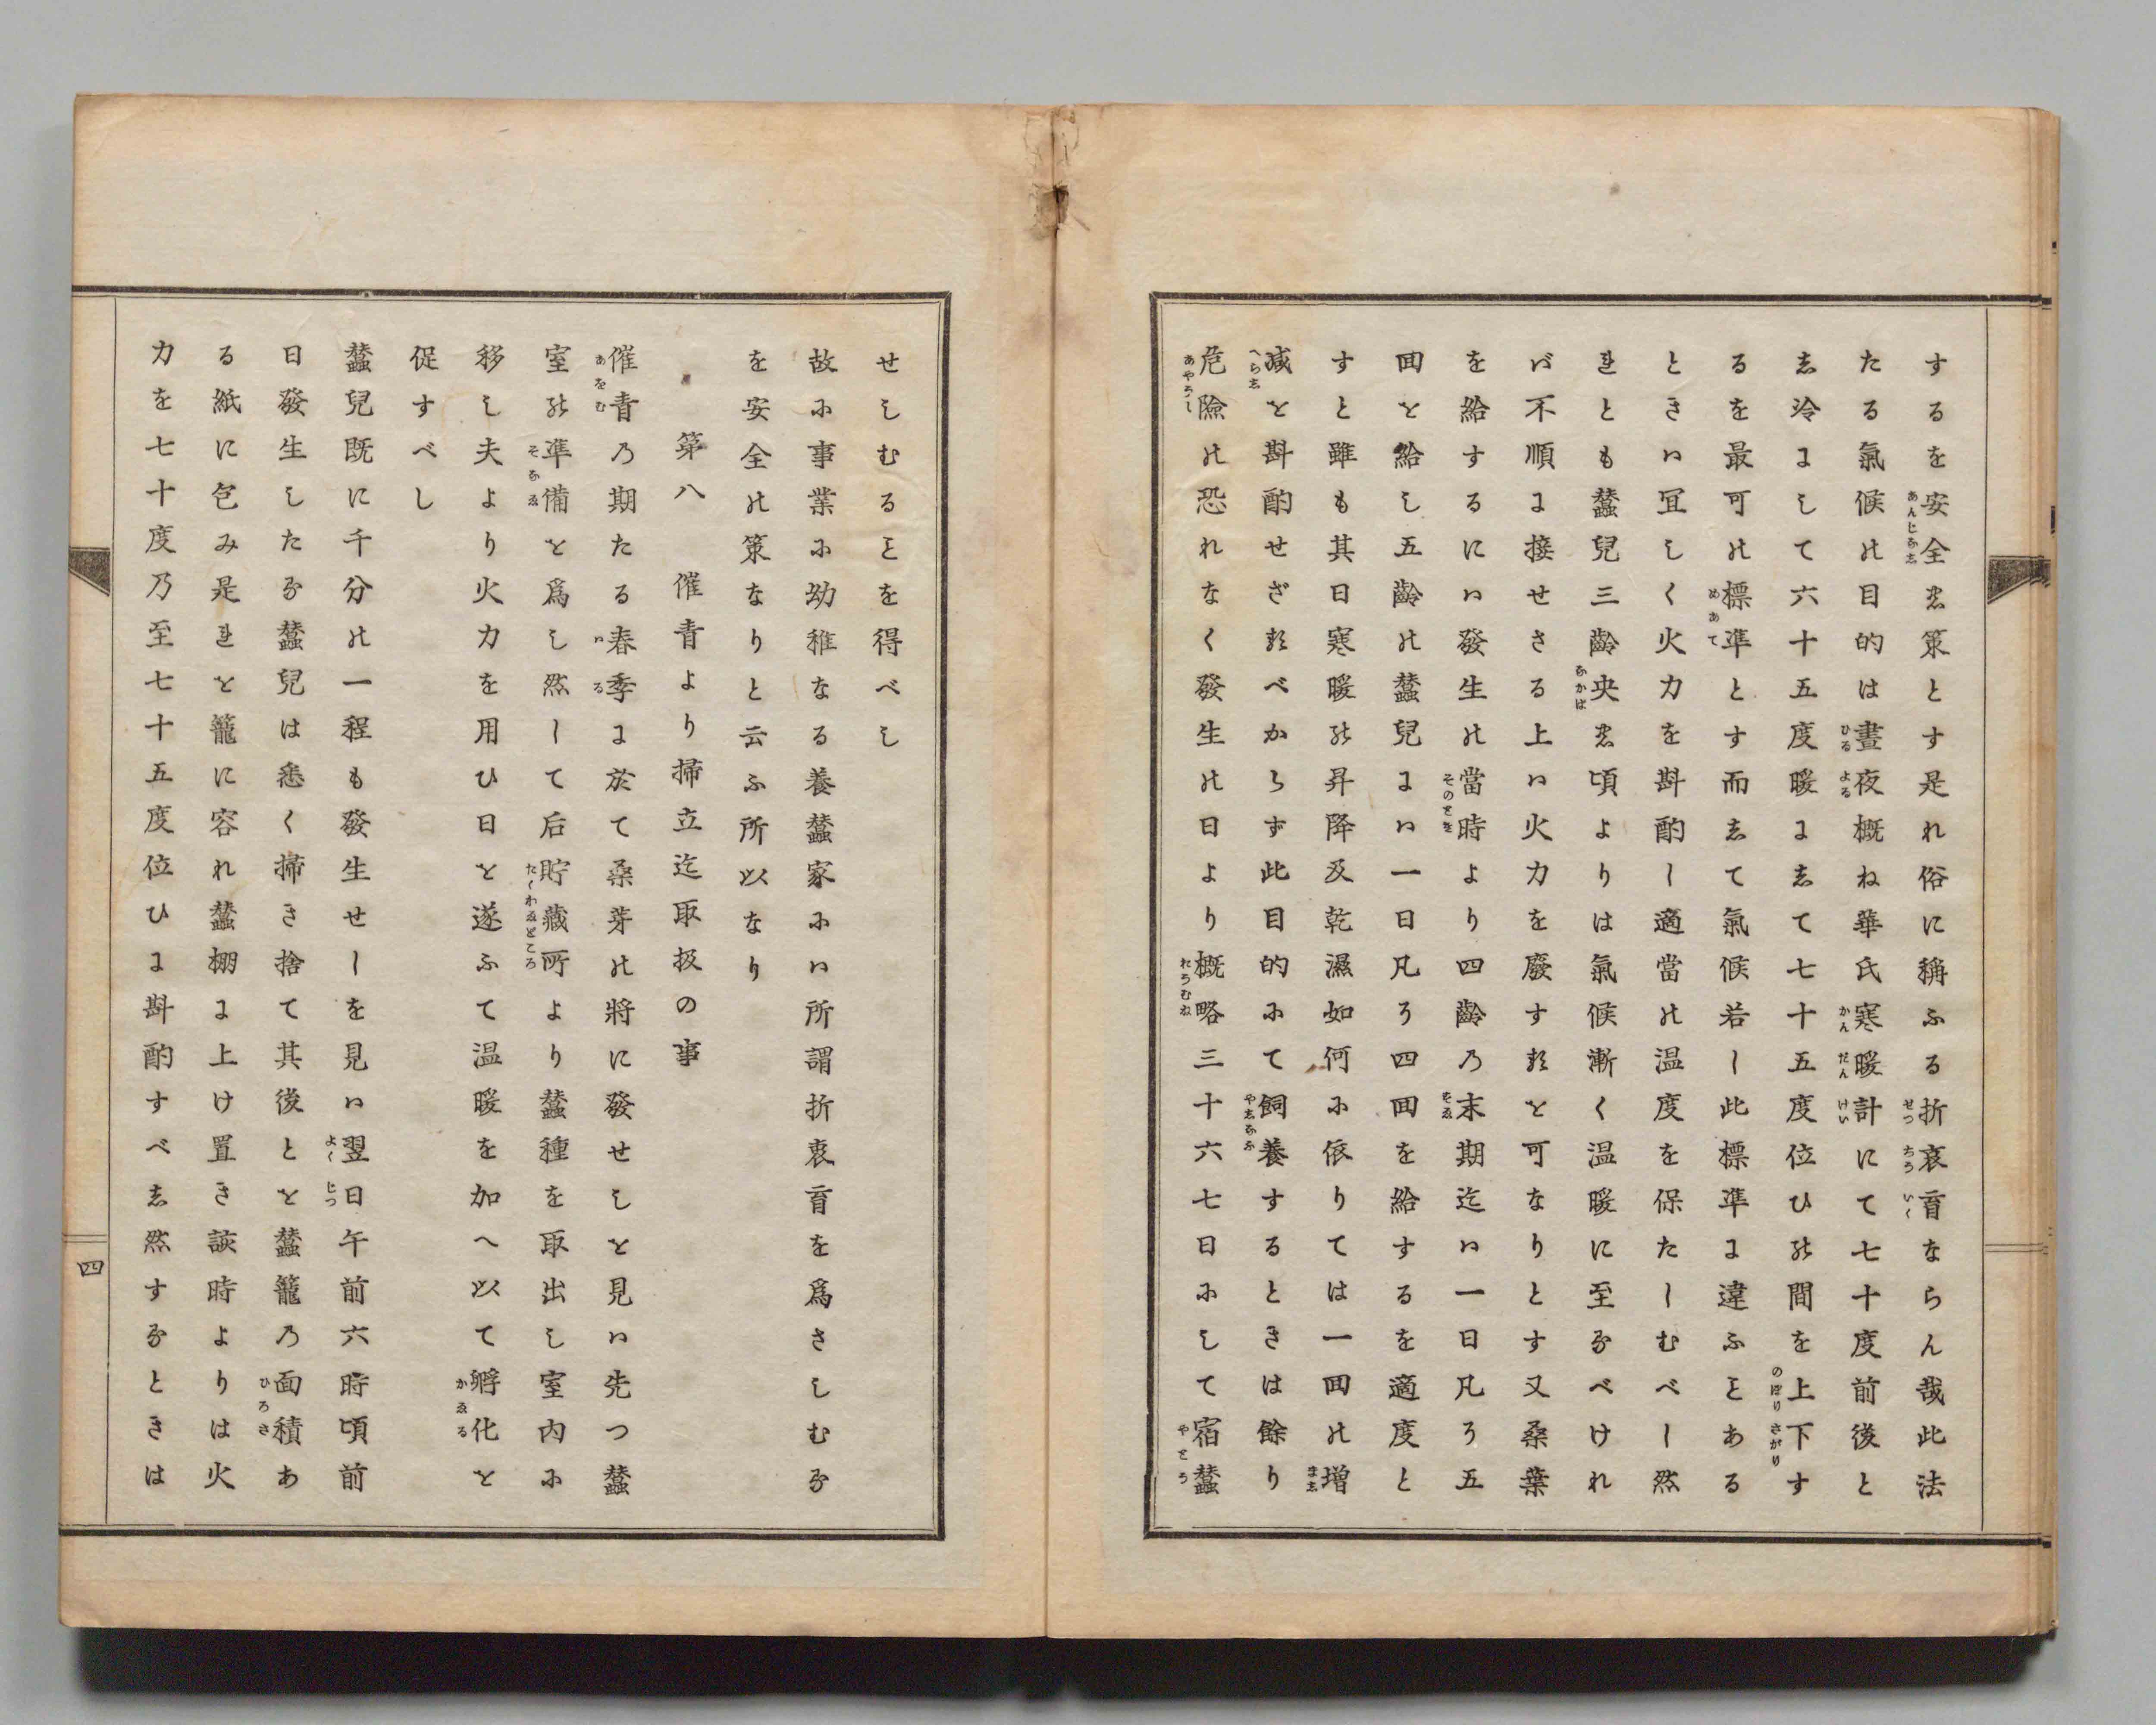 するを安全の策とす是れ俗に稱ふる折衷育ならん哉此法
たる氣候の目的は晝夜概ね華氏寒暖計にて七十度前後と
し冷にして六十五度暖にして七十五度位ひの間を上下す
るを最可の標準とす而して氣候若し此標準に違ふことある
ときハ宜しく火力を斟酌し適當の温度を保たしむべし然
れとも蠶兒三齡央の頃よりは氣候漸く温暖に至るべけれ
バ不順に接せさる上ハ火力を廢するを可なりとす又桑葉
を給するにハ發生の當時より四齡の末期迄ハ一日凡そ五
回を給し五齡の蠶兒にハ一日凡そ四回を給するを適度と
すと雖も其日寒暖の昇降及乾濕如何に依りては一回の増
减を斟酌せざるべからず此目的にて飼養するときは餘り
危險の恐れなく發生の日より概略三十六七日にして宿蠶
せしむることを得べし
故に事業に幼稚なる養蠶家にハ所謂折衷育を爲さしむる
を安全の策なりと云ふ所以なり
第八　催青より掃立迄取扱の事
催青の期たる春季に於て桑芽の將に發せしを見ハ先つ蠶
室の準備を爲し然して后貯藏所より蠶種を取出し室内に
移し夫より火力を用ひ日を遂ふて温暖を加へ以て孵化を
促すべし
蠶兒既に千分の一程も發生せしを見ハ翌日午前六時頃前
日發生したる蠶兒は悉く掃き捨て其後とを蠶籠の面積あ
る紙に包み是れを籠に容れ蠶棚に上け置き該時よりは火
力を七十度乃至七十五度位ひに斟酌すべし然するときは
四